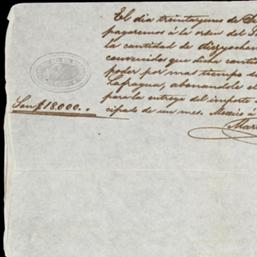 El dia treintayuno de
pagaremos á la orden del
la cantidad de diezyochom
convenidos que dicha canti
poder por mas tiempo de
Lafragua, abonandole el
para la entrega del importe
Son $18,000..
cipado de un mes. Mexico á
Mar